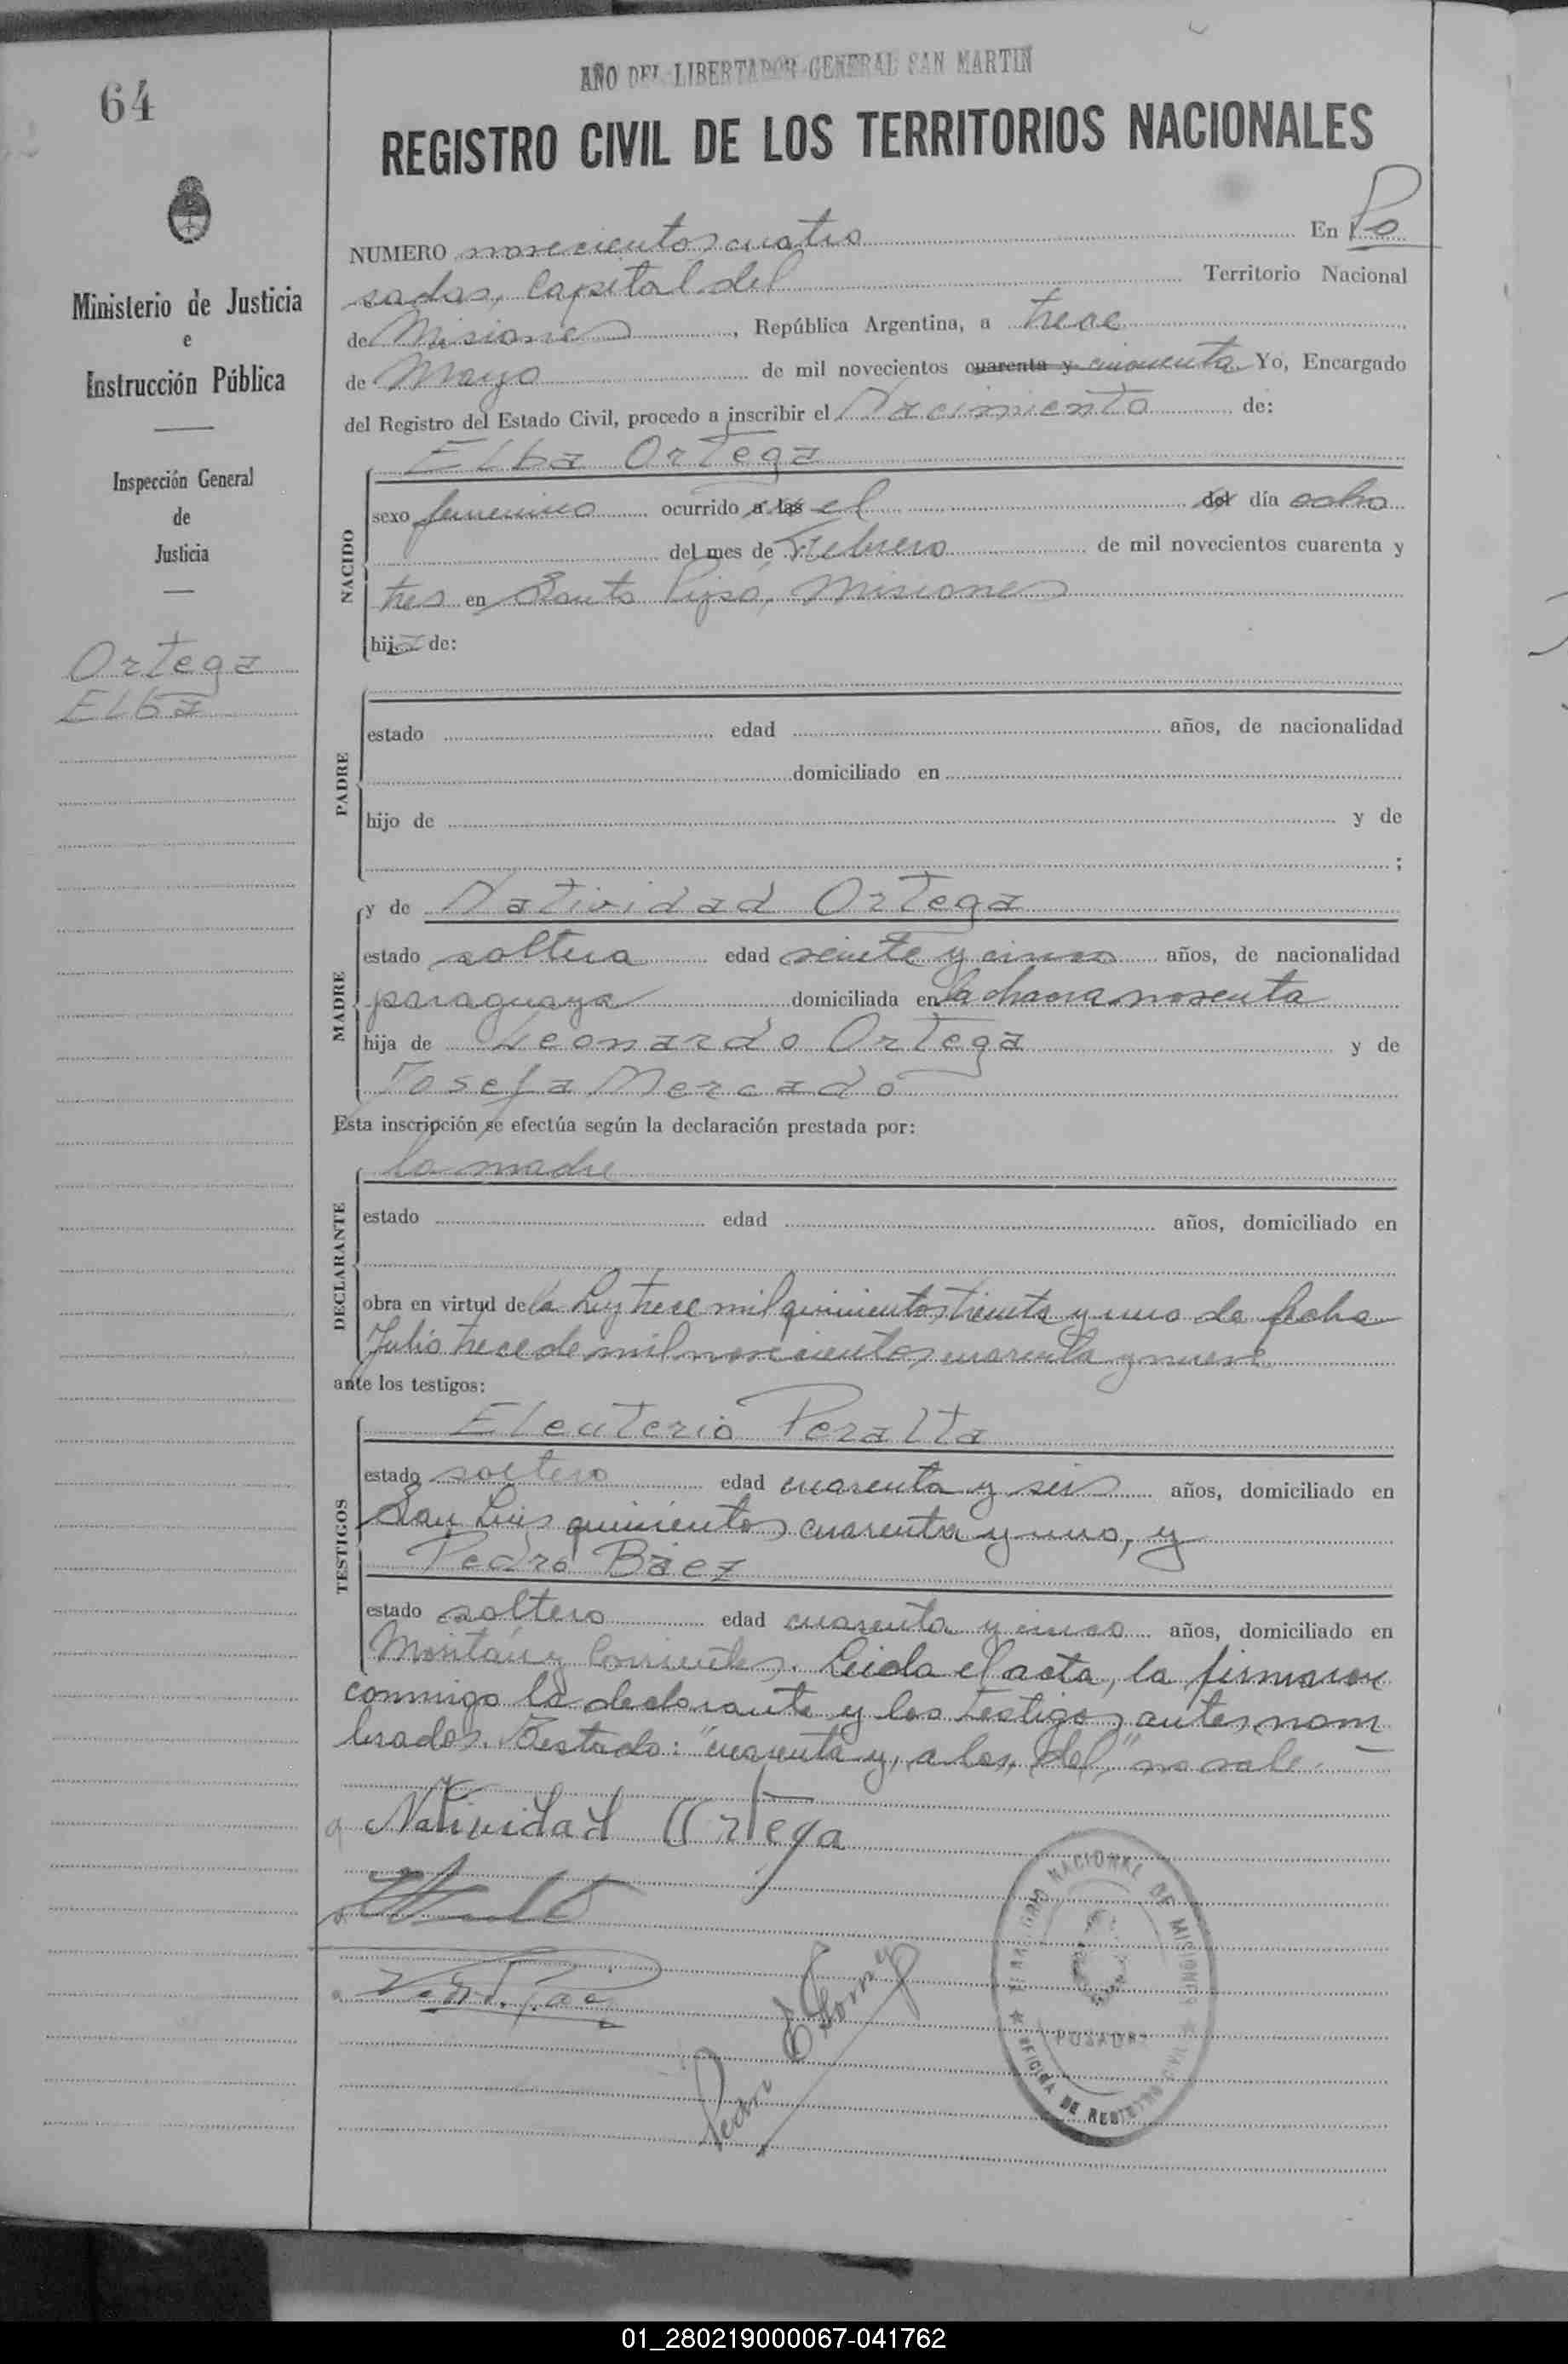 64
AÑO DEL LIBERTADOR GENERAL SAN MARTIN
REGISTRO CIVIL DE LOS TERRITORIOS NACIONALES
Ministerio de Justicia
e
Instrucción Pública
Inspección General
de
Justicia
Ortega
Elba
NUMERO novecientos cuatro En Po
sadas, Capital del Territorio Nacional
de Misiones, República Argentina, a trece
de Mayo de mil novecientos cuarenta y cincuenta Yo, Encargado
del Registro del Estado Civil, procedo a inscribir el Nacimiento de:
Elba Ortega
NACIDO
sexo femenino ocurrido a las el del día ocho
del mes de Febrero de mil novecientos cuarenta y
tres en Santo Pipó, Misiones
hija de:
PADRE
estado edad años, de nacionalidad
domiciliado en
hijo de y de
;
MADRE
y de Natividad Ortega
estado soltera edad veinte y cinco años, de nacionalidad
paraguaya domiciliada en la chacra noventa
hija de Leonardo Ortega y de
Josefa Mercado
Esta inscripción se efectúa según la declaración prestada por:
DECLARANTE
la madre
estado edad años, domiciliado en
obra en virtud de la Ley trece mil quinientos treinta y uno de fecha
Julio trece de mil novecientos cuarenta y nueve
ante los testigos:
TESTIGOS
Eleuterio Peralta
estado soltero edad cuarenta y seis años, domiciliado en
San Luis quinientos cuarenta y uno, y
Pedro Báez
estado soltero edad cuarenta y cinco años, domiciliado en
y Corrientes. Leida el acta, la firmaron
conmigo la declarante y los testigos antes nom
brados. Testado: "cuarenta y, a las, del," no vale.—
Natividad Ortega
NACIONAL DE MISIONES
POSADAS
OFICINA DE REGISTRO CIVIL
01_280219000067-041762